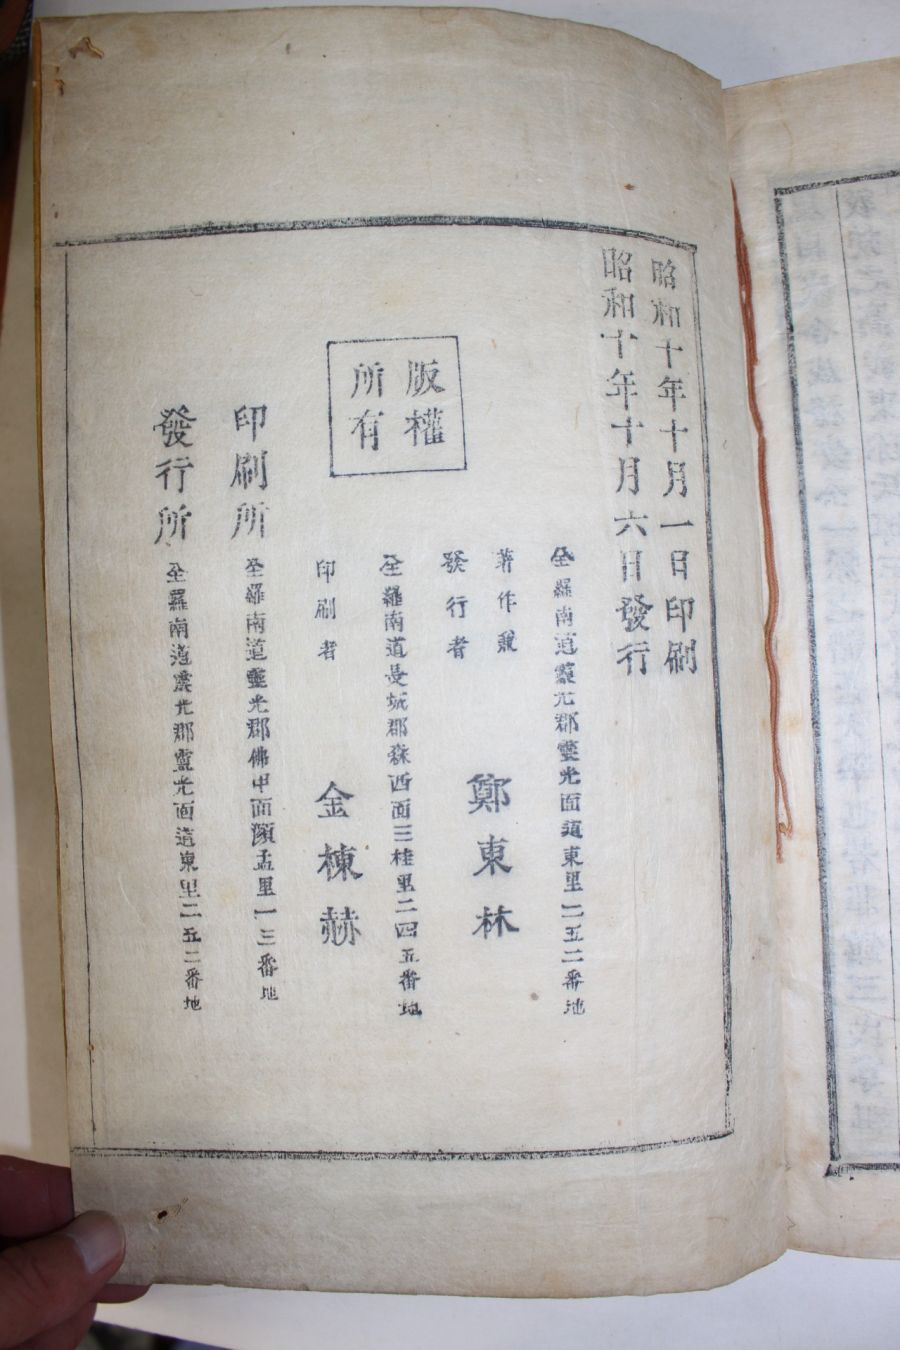 昭和十年十月一日印刷
昭和十年十月六日發行
全羅南道靈光郡靈光面道東里二五二番地
著作兼
發行者
鄭東林
版權
所有
全羅南道長城郡森西面三桂里二四五番地
印刷者
金棟赫
印刷所
全羅南道靈光郡佛甲面 孟里一三番地
發行所
全羅南道靈光郡靈光面道東里二五二番地